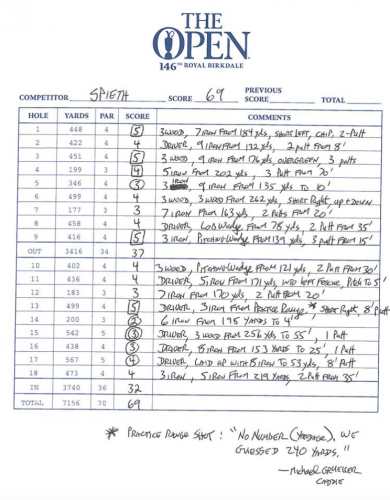 THE
OPEN
146TH ROYAL BIRKDALE
COMPETITOR SPIETH SCORE 69 PREVIOUS SCORE TOTAL
HOLE YARDS PAR SCORE COMMENTS
1 448 4 5 3 WOOD, 7 IRON FROM 184 yds, SHORT LEFT, CHIP, 2-Putt
2 422 4 4 DRIVER, 9 IRON FROM 132 yds, 2 putt FROM 8'
3 451 4 5 3 WOOD, 9 IRON FROM 176 yds, OVERGREEN, 3 putts
4 199 3 4 5 IRON FROM 202 yds, 3 Putt FROM 70'
5 346 4 3 3 IRON, 9 IRON FROM 135 yds TO 10'
6 499 4 4 3 WOOD, 3 WOOD FROM 262 yds, SHORT Right, up + DOWN
7 177 3 3 7 IRON FROM 163 yds, 2 Putts FROM 20'
8 458 4 4 DRIVER, LOB WEDGE FROM 78 yds, 2 Putt FROM 35'
9 416 4 5 3 IRON, Pitching Wedge FROM 139 yds, 3 putt FROM 15'
OUT 3416 34 37
10 402 4 4 3 WOOD, Pitching Wedge FROM 121 yds, 2 Putt FROM 30'
11 436 4 4 DRIVER, 5 IRON FROM 171 yds, INTO LEFT FESCUE, Pitch TO 5'
12 183 3 3 7 IRON FROM 170 yds, 2 Putt FROM 20'
13 499 4 5 DRIVER, 3 IRON FROM PRACTICE RANGE * SHORT Right, 8' Putt
14 200 3 2 6 IRON FROM 195 YARDS TO 4'
15 542 5 3 DRIVER, 3 WOOD FROM 256 yds TO 55', 1 Putt
16 438 4 3 DRIVER, 8 IRON FROM 153 YARDS TO 25', 1 Putt
17 567 5 4 DRIVER, LAID UP WITH 8 IRON TO 53 yds, 8' Putt
18 473 4 4 3 IRON, 5 IRON FROM 219 YARDS, 2 Putt FROM 35'
IN 3740 36 32
TOTAL 7156 70 69
* PRACTICE RANGE SHOT: "NO NUMBER (YARDAGE). WE
GUESSED 240 YARDS."
—MICHAEL GRELLER
CADDIE